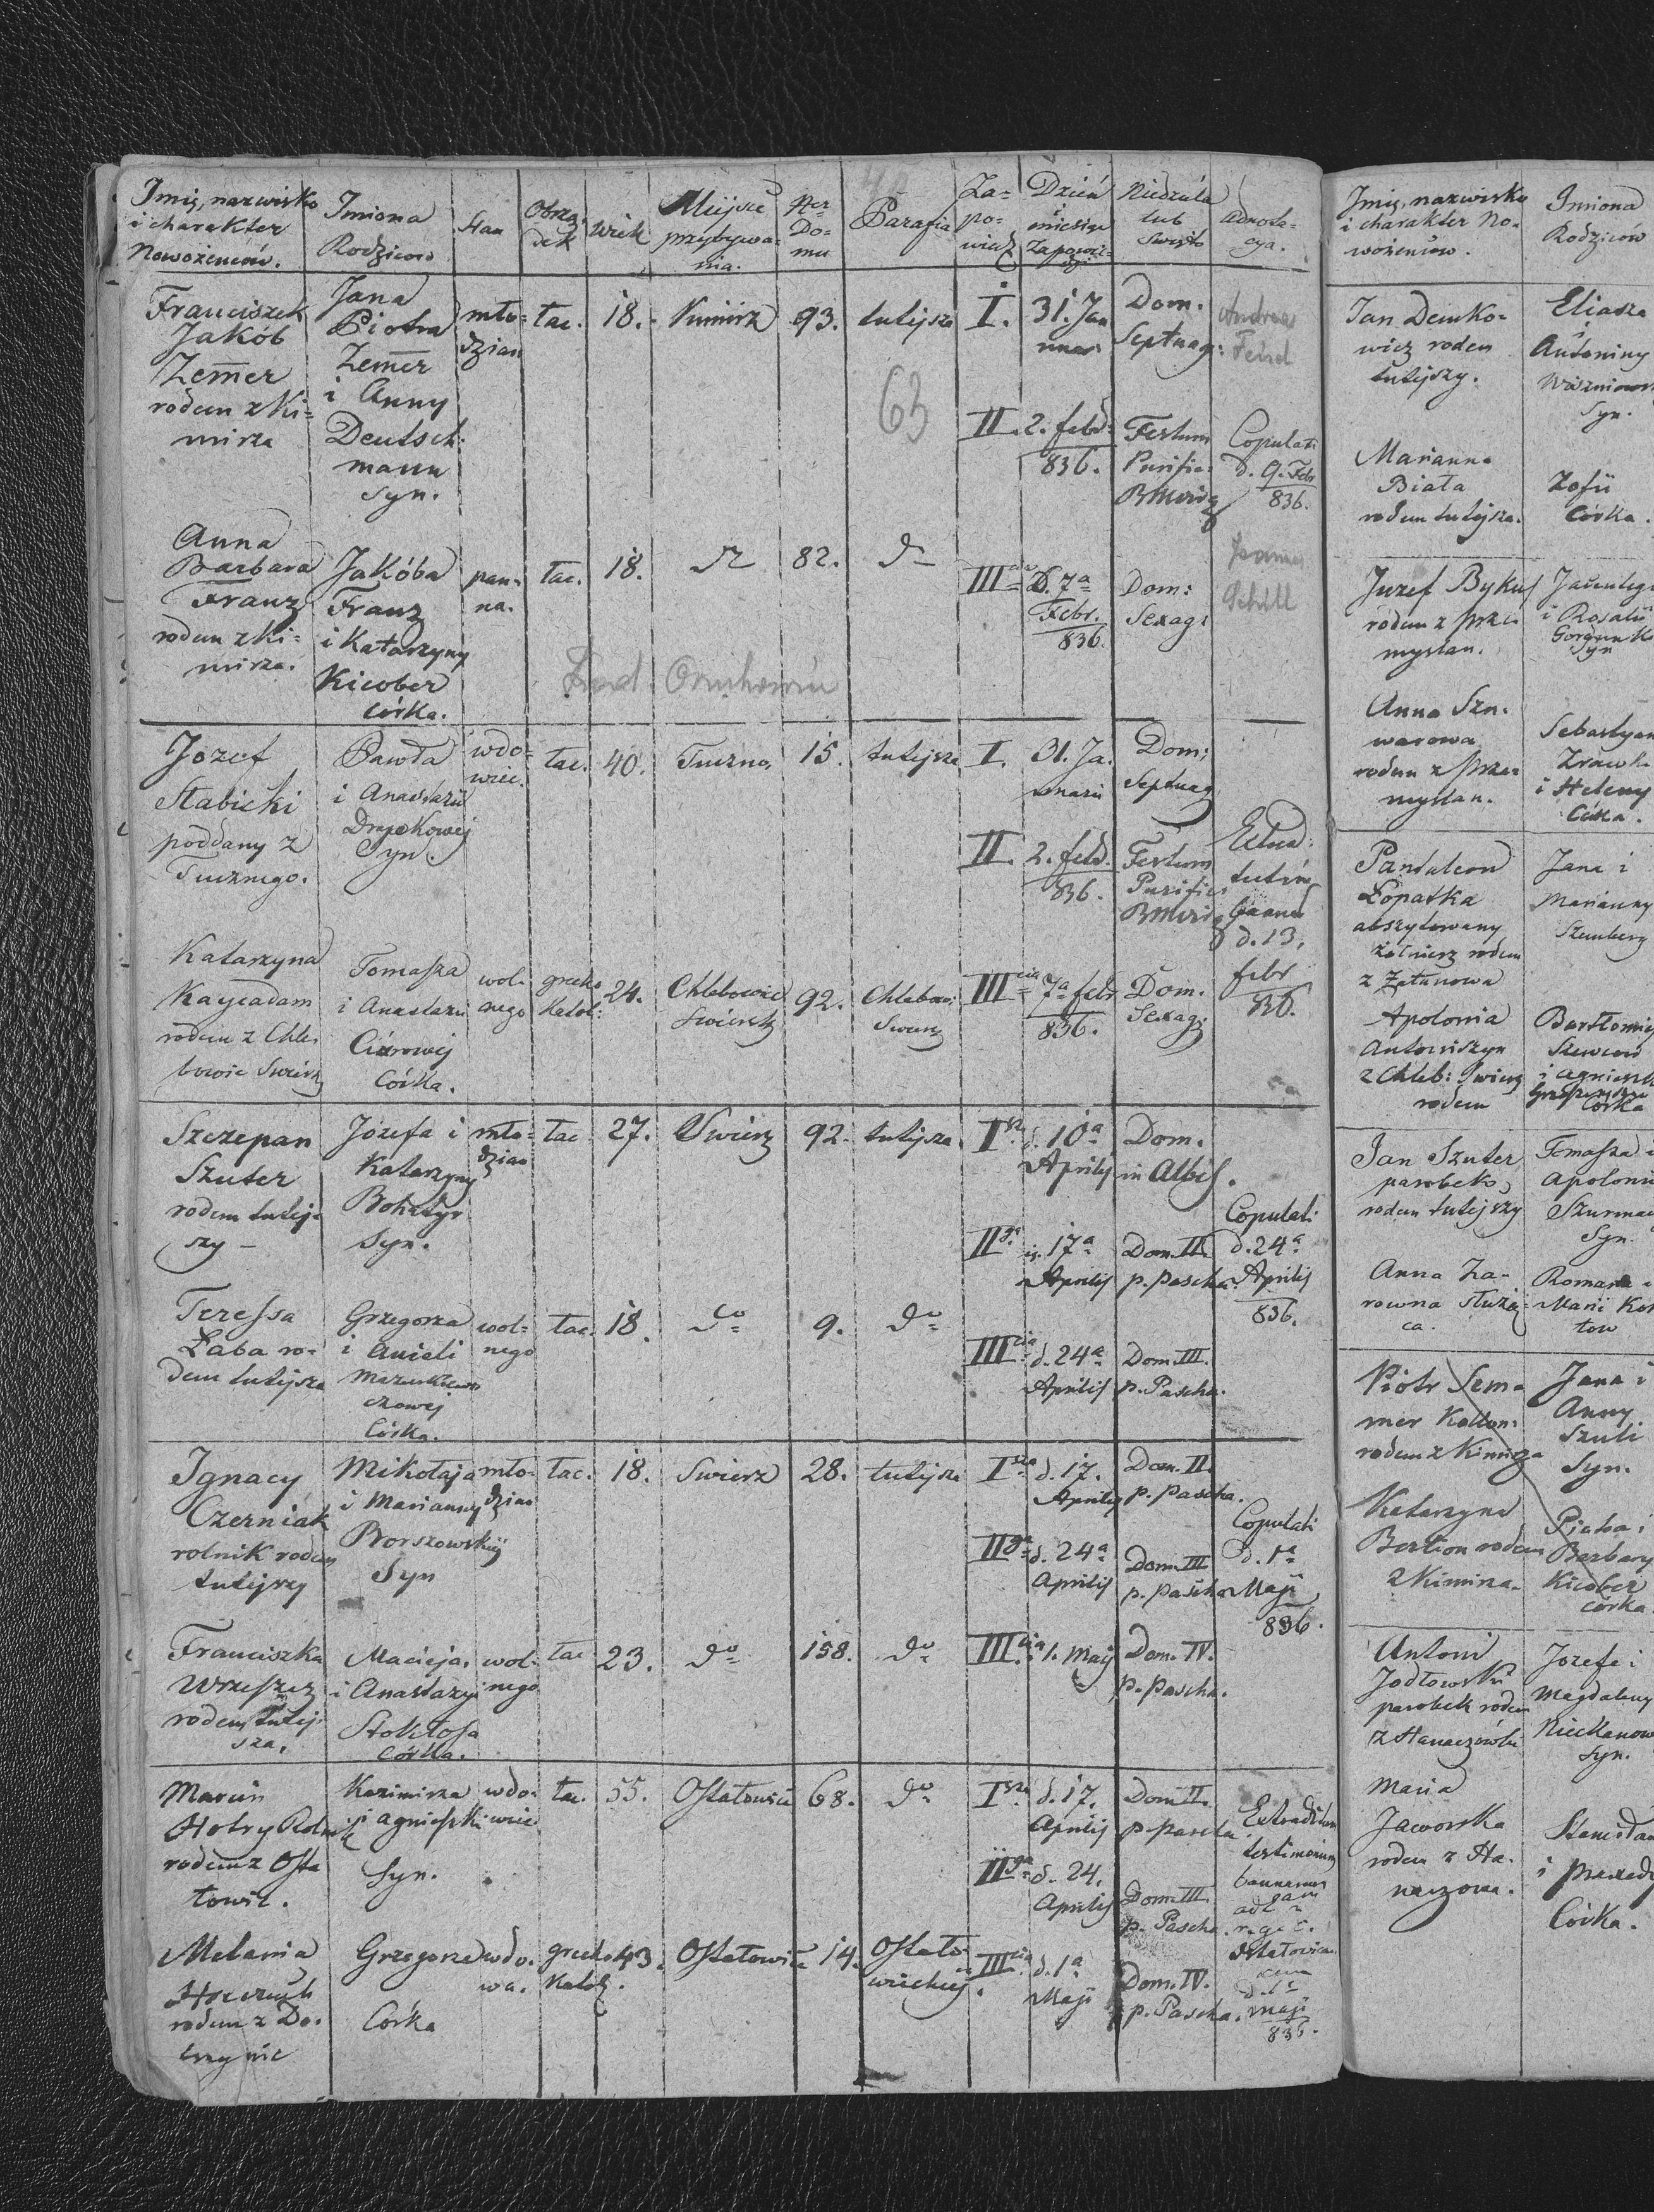 Imię, nazwisko
i charakter
Nowożeńców.
Imiona
Rodziców
Stan
Obrzą-
dek
Wiek
Miejsce
przybywa-
nia.
Ner
Do-
mu
Parafia
Za-
po-
wiedź
Dzień
miesiąc
Zapowie-
Niedziela
lub
Święto
Adnota-
cya.
Franciszek
Jakób
Zem̅er
rodem z Ki-
mirza
Jana
Piotra
Zem̅er
i Anny
Deutsch-
mann
Syn.
mło-
dzian
łac.
18.
Kimirz
93.
tutejsza
I.
31. Jan
nuar
Dom.
Septuag:
Andreas
63
II.
2. febr
836.
Festum
Purific:
BMariæ
Copulati
d. 9. Feb
836.
Anna
Barbara
Franz
rodem z Ki-
mirza.
Jakóba
Franz
i Katarzyny
Kicober
Córka.
pan-
na.
łac.
18.
dto
82.
dto
III
D. 7a
Febr.
836.
Dom:
Sexag:
Schill
Jozef
Stabicki
poddany z
Tucznego.
Pawła
i Anastazii
Drapkowej
Syn.
wdo-
wiec.
łac.
40.
Tuczne,
15.
tutejsza
I.
31. Ja.
nuarii
Dom:
Septuag
II.
2. febr.
836.
Festum
Purific:
BMariæ
d. 13.
febr
836.
Katarzyna
Kaycadam
rodem z Chle-
bowic Swirz
Tomasza
i Anastazii
Ciurowej
Córka.
wol-
nego
grecko
Katol:
24.
Chlebowice
Swirsk
92.
Chlebow:
Swirz
III cia
7a febr
836.
Dom.
Sexag:
Szczepan
Szuter
rodem tutej-
szy –
Józefa i
Katarzyny
Bohatyr
Syn.
mło-
dzian
łac
27.
Swierz
92.
tutejsza.
I
d. 10a
Aprilis
Dom.
in Albis.
II
d. 17a
Aprilis
Dom. II.
p. Pascha.
Copulati
d. 24a
Aprilis
836.
Teressa
Łaba ro-
dem tutejsza
Grzegorza
i Anieli
czowej
Córka.
wol-
nego
łac.
18.
dto
9.
dto
III cia
d. 24a
Aprilis
Dom. III.
p. Pascha.
Ignacy
Czerniak
rolnik rodem
tutejszy
Mikołaja
i Marianny
Borszowskiej
Syn
mło-
dzian
łac.
18.
Swierz
28.
tutejsza
I
d. 17.
Aprilis
Dom. II.
p. Pascha.
II
d. 24a
Aprilis
Dom. III
p. Pascha
Copulati
d. 1a
Maji
836.
Franciszka
Wrzeszcz
rodem tutej-
sza.
Macieja,
i Anastazyi
Stokłosa
Córka.
wol-
nego
łac
23.
dto
158.
dto
III cia
1. Maij
Dom. IV.
p. Pascha.
Marcin
Hołry Rolnik
rodem z Osta
łowic.
Kazimirza
i Agnieszki
Syn.
wdo-
wiec
łac.
55.
Ostałowice
68.
dto
I
d. 17.
Aprilis
Dom. II.
p. Pascha
II
d. 24.
Aprilis
Dom. III.
p. Pascha
Extraditum
testimonium
bannorum
d. 1a
Maji
836.
Melania
rodem z Do-
brzanic
Grzegorza
Córka
wdo-
wa.
grecko
Katol.
43.
Ostałowice
14.
Ostało
wickiej
III
d. 1a
Maji
Dom. IV.
p. Pascha.
Imię, nazwisko
i charakter No-
wożeńców.
Imiona
Rodziców
Jan Demko-
wicz rodem
tutejszy.
Eliasza
i
Antoniny
Syn.
Marianna
Biała
rodem tutejsza.
Zofii
Córka.
Jozef Bykus
rodem z Prze-
myslan.
i Rosalii
Syn
Anna Szn-
warowa
rodem z Prze-
myslan.
Sebastyan
i Heleny
Córka.
Pantaleon
Łopatka
abszytowany
żołnierz rodem
z Załanowa
Jana i
Marianny
Szemberg
Apolonia
Antoniszyn
z Chleb: Swierz
rodem
Bartłomiej
Szewców
i Agnieszk
Córka
Jan Szuter
parobek,
rodem tutejszy
Tomasza i
Apolonii
Syn.
Anna Ża-
rowna służą-
ca.
Romana i
Marii Kor
tow
Piotr Sem-
mer Kolon:
rodem z Kimirza
Jana i
Anny
Szuli
Syn.
Katarzyna
Bertion rodem
z Kimirza.
Piotra i
Barbary
Kicober
Córka.
Antoni
Jodłowski
parobek rodem
z Hanaczówki
Jozefa i
Magdaleny
Syn.
Maria
Jaworska
rodem z Ha-
naczowa.
Stanisław
i
Córka.